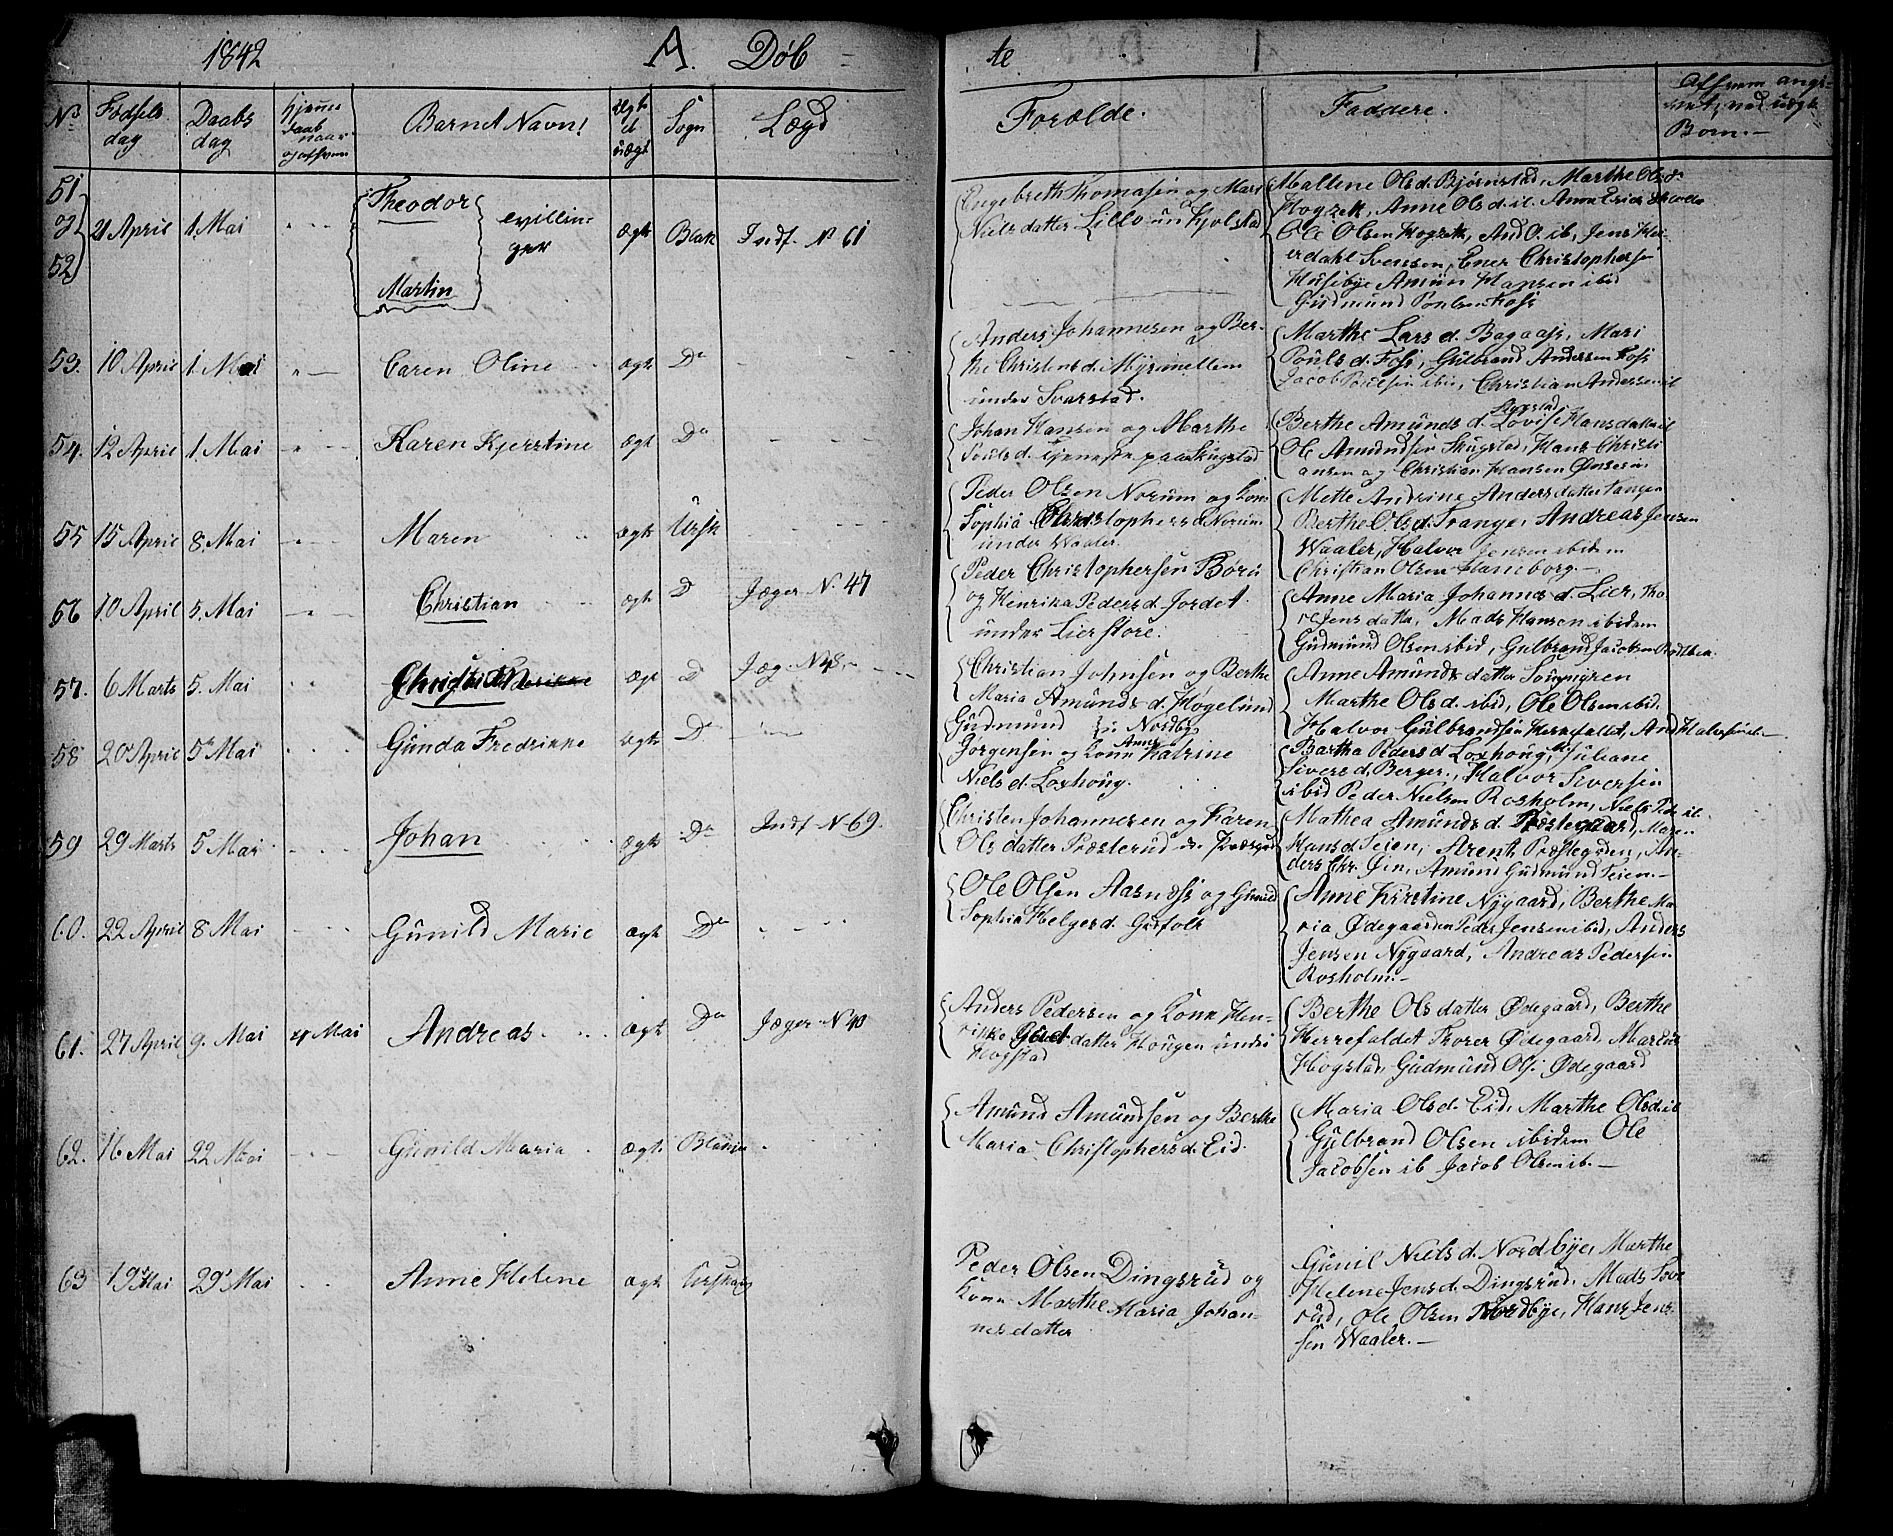 1842 A. Døb = te
No Fødsels dag Daabs dag Hjemme daab naar og af hvem Barnets Navn! Ægte el. uægte Sogn Lægd Forælde. Faddere. Af hvem angivet, ved uægte Børn.
51 og 52 21 April 1. Mai Theodor Martin tvillinger ægte Blak Indf. No 61
Engebreth Thomasen og Mari
Nielsdatter Lillo un Hjolstad
Mallene Olsd. Bjørnstad, Marthe Olsd
Hogset, Anne Olsd. ib.
Ole Olsen Hogset, And. O. ib, Jens Hei-
erdahl Svensen, Ener Christophersen
Husebye Amun Hansen ibid
Gudmund Poulsen Foss
53. 10 April 1. Mai Caren Oline ægte Do
Anders Johannesen og Ber-
the Christensd. Myrmellem
under Svarstad.
Marthe Larsd. Bagaas, Mari
Poulsd. Foss, Gulbrand Andersen Foss
Jacob Poulsen ibid, Christian Andersen ib
54. 12 April 1. Mai Karen Kjerstine ægte Do
Johan Hansen og Marthe
Poulsd. tjenesten paa Skugstad
Berthe Amundsd. Skugstad Lovise Hansdatter ib
Ole Amundsen Skugstad, Hans Christi
ansen og Christian Hansen
55 15 April 8. Mai Maren ægte Ursk
Peder Olsen Norum og kone
Sophia Christophersd. Norum
under Waaler.
Mette Andrine Andersdatter Tangen
Berthe Olsd. Trange, Andreas Jensen
Waaler, Halvor Jensen ibidem
Christian Olsen Haneborg.
56 10 April 5. Mai Christian ægte D Jæger No. 47
Peder Christophersen Børu
og Henrika Pedersd. Jordet
under Lierstore.
Anne Maria Johannesd. Lier, Tho-
re Jensdatter, Mads Hansen ibidem
Gudmund Olsen ibid, Gulbrand Jacobsen
57. 6 Marts 5. Mai Christian ægte D Jæg. No 48.
Christian Johnsen og Berthe
Maria Amundsd. Høgelund
u Nordby
Anne Amundsdatter Sommyren
Marthe Olsd. ibid, Ole Olsen ibid.
Halvor Gulbrandsen Herrefallet, And Halvorsen ib.
58 20 April 5 Mai Gunda Fredrikke ægte Do
Gudmund
Jørgensen og kone Anne Katrine
Nielsd. Loshøug.
Bartha Pedersd. Loshøug, Juliane
Siversd. Berger, Halvor Siversen
ibid Peder Nielsen Rosholm, Niels Ped. ib.
59 29 Marts 5 Mai Johan ægte Do Indf. No 69.
Christen Johannesen og Karen
Olsdatter Præsterud u. Præsgrd
Mathea Amundsd. Præstegaard, Maren
Hansd. Teien, Arent Præstegrden, An-
ders Chr. Øin, Amund Gudmund Teien.
60. 22 April 8. Mai Gunild Marie ægte Do
Ole Olsen Aasnæss og Gunild
Sophia Helgersd. Gutfolk
Anne Kirstine Nygaard, Berthe Ma-
ria Ødegaarden Peder Jensen ibid, Anders
Jensen Nygaard, Andreas Pedersen
Rosholm.
61. 27 April 9. Mai 4 Mai Andreas ægte Do Jæger No 40
Anders Pedersen og Kone Hen-
rikke datter Hougen under
Hogstad
Berthe Olsdatter Ødegaard, Berthe
Herrefaldet Thorer Ødegaard, Marcus
Hogstad, Gudmund Ols. Ødegaard
62. 16 Mai 22 Mai Gunild Maria ægte Blakier
Amund Amundsen og Berthe
Maria Christophersd. Eid.
Maria Olsd. Eid, Marthe Olsd. ib
Gulbrand Olsen ibidem Ole
Jacobsen ib Jacob Olsen ib.
63 19. Mai 29. Mai Anne Helene ægte Urskoug
Peder Olsen Dingsrud og
Kone Marthe Maria Johan-
nesdatter
Gunil Nielsd. Nordbye, Marthe
Helene Jensd. Dingsrud, Mads Tove
rud, Ole Olsen Nordbye, Hans Jens-
sen Waaler.